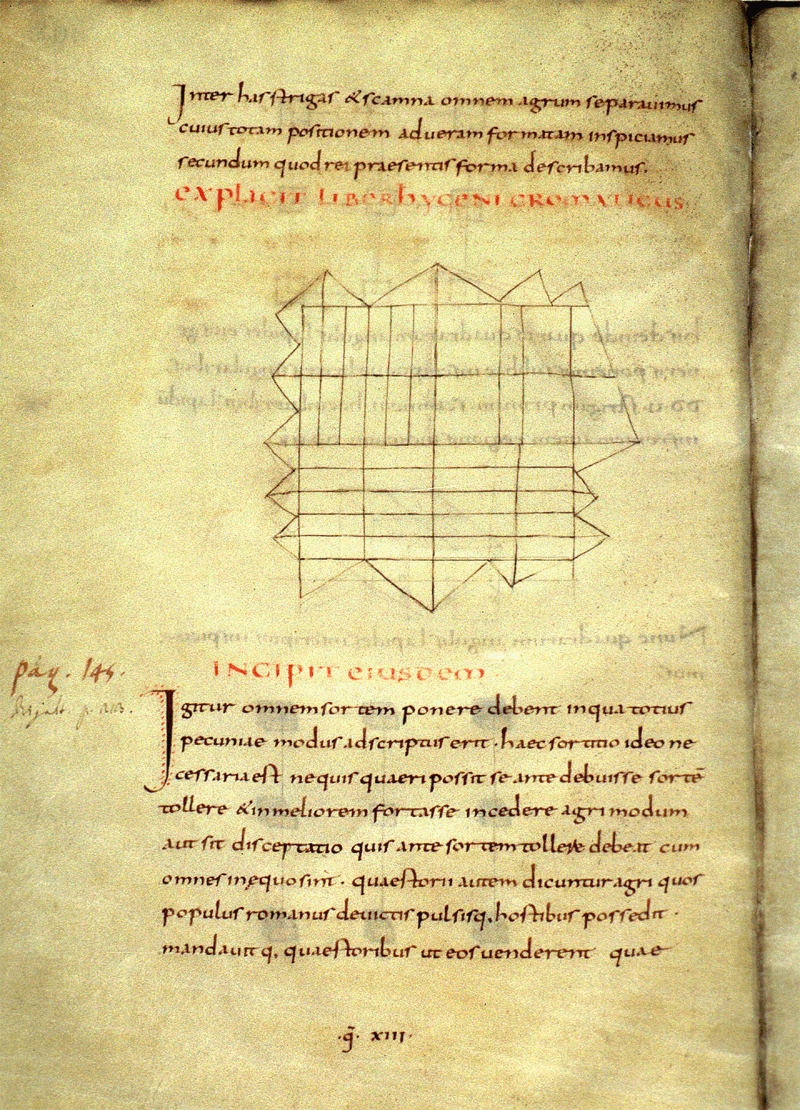 Inter has strigas & scamna omnem agrum separauimus
cuius totam positionem ad ueram formatam inspiciamus
secundum quod rei praesentis forma describamus.
EXPLICIT LIBER hYGENI GROMATICUS
INCIPIT EIUSDEM
pag. 145.
Igitur omnem sortem ponere debent in qua totius
pecuniae modus adscriptus erit · haec sortitio ideo ne
cessaria est ne quis quaeri possit se ante debuisse sortē
tollere & in meliorem fortasse incedere agri modum
aut sit disceptatio quis ante sortem tollere debeat cum
omnes in equo sint · quaestorii autem dicuntur agri quos
populus romanus deuictis pulsisq, hostibus possedit ·
mandauitq, quaestoribus ut eos uenderent quae
·q̄· xiii·